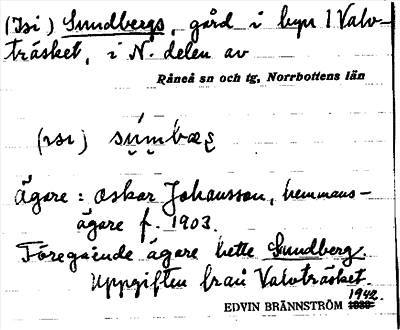 (Isi) Sundbergs, gård i byn 1 Valv-
träsket, i N. delen av
Råneå sn och tg, Norrbottens län
(ɪsɪ) súmbæʂ
Ägare: Oskar Johansson, hemmans-
ägare f. 1903.
Föregående ägare hette Sundberg.
Uppgiften från Valvträsket.
1942.
EDVIN BRÄNNSTRÖM